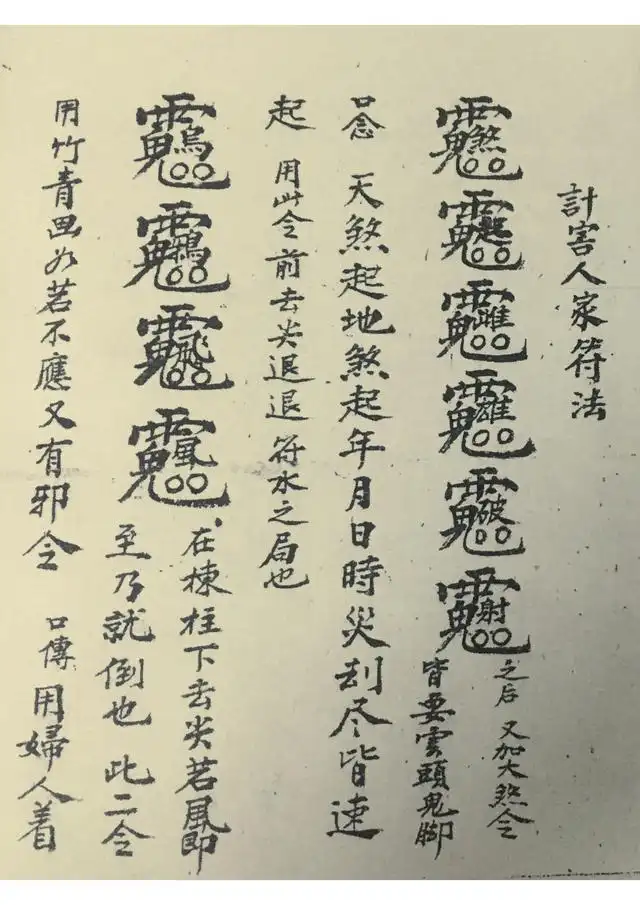 計害人家符法
之后又加大煞令
皆要雲頭鬼脚
口念 天煞起地煞起年月日時災刦尽皆速
起 用此令前去尖退退符水之局也
在棟柱下去尖若風即
至乃就倒也 此二令
用竹青画若不應又有邪令 口傳用婦人着